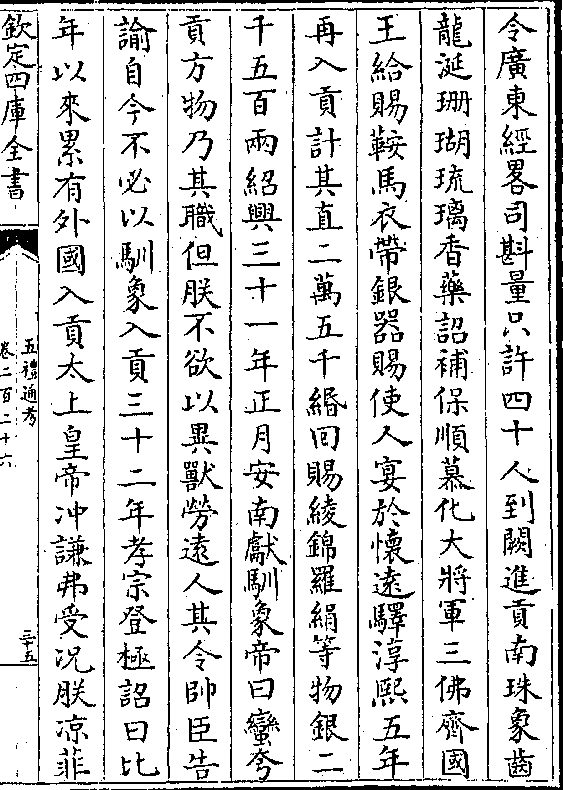 令廣東經畧司斟量只許四十人到闕進貢南珠象齒
龍涎珊瑚琉璃香藥詔補保順慕化大將軍三佛齊國
王給賜鞍馬衣帶銀器賜使人宴於懷遠驛淳熙五年
再入貢計其直二萬五千緡回賜綾錦羅絹等物銀二
千五百兩紹興三十一年正月安南獻馴象帝曰蠻夸
貢方物乃其職但朕不欲以異獸勞遠人其令帥臣告
諭自今不必以馴象入貢三十二年孝宗登極詔曰比
年以來累有外國入貢太上皇帝冲謙弗受况朕凉菲
欽定四庫全書
五禮通考
卷二百二十六
三十五